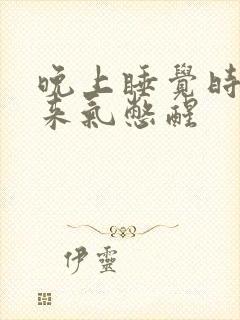 晚上睡覺時
来氣憋醒
伊靈